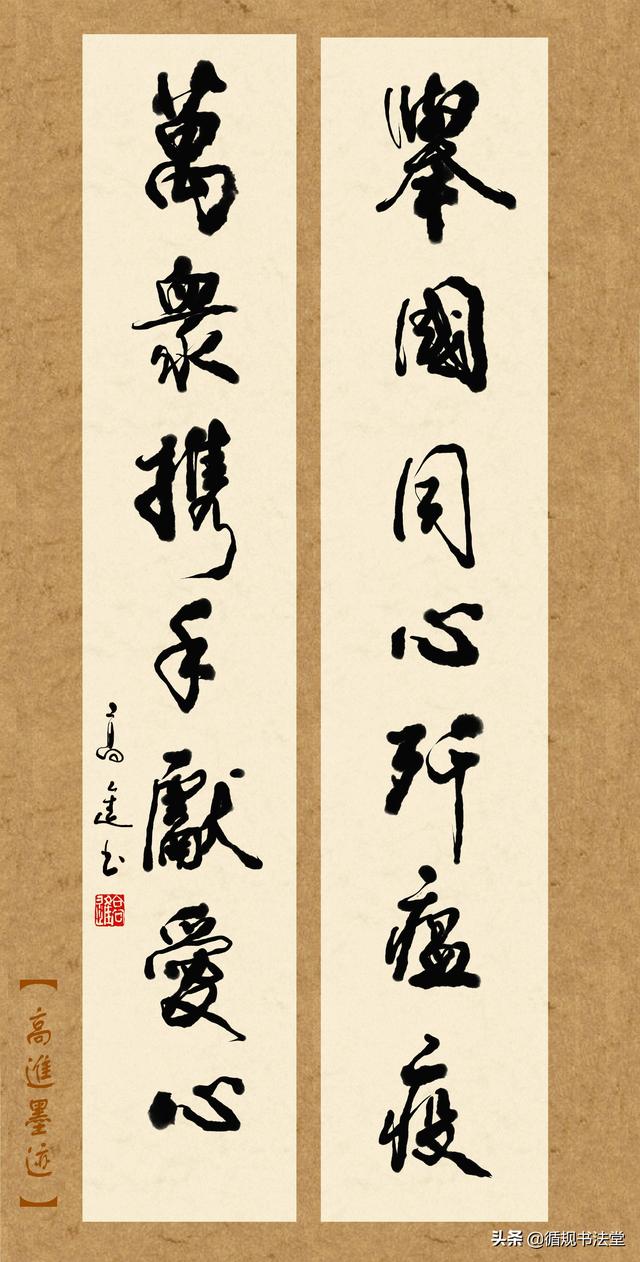 舉國同心歼瘟疫
萬衆携手獻愛心
高進书
高進
【高進墨迹】
头条 @循规书法堂